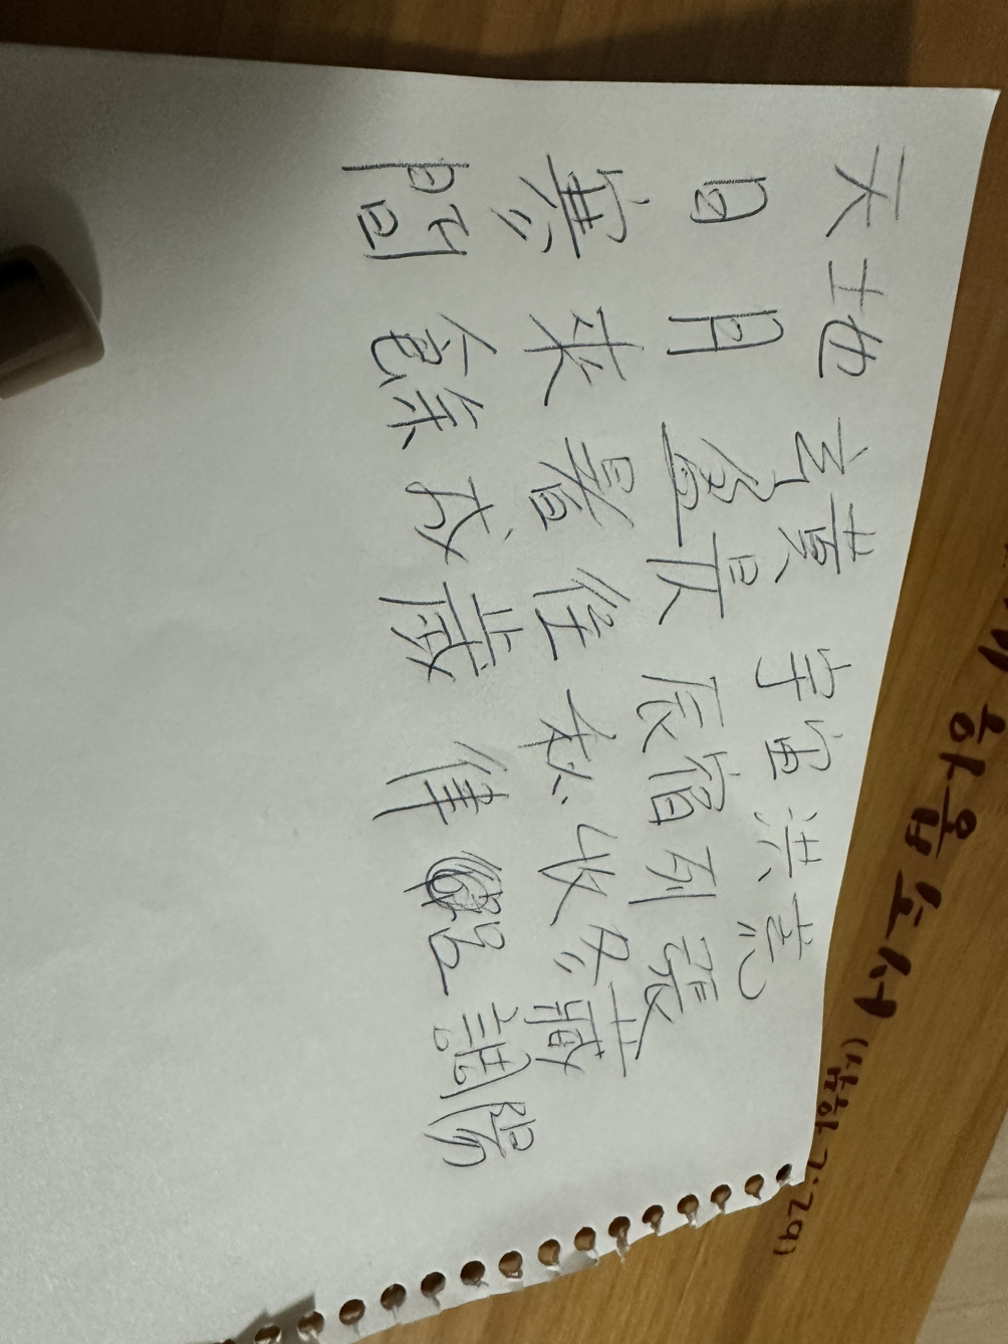 天地玄黄宇宙洪荒
日月盈昃辰宿列張
寒來暑往秋收冬藏
間餘成歲律呂調陽
하옵소서 (삼하 7:29)